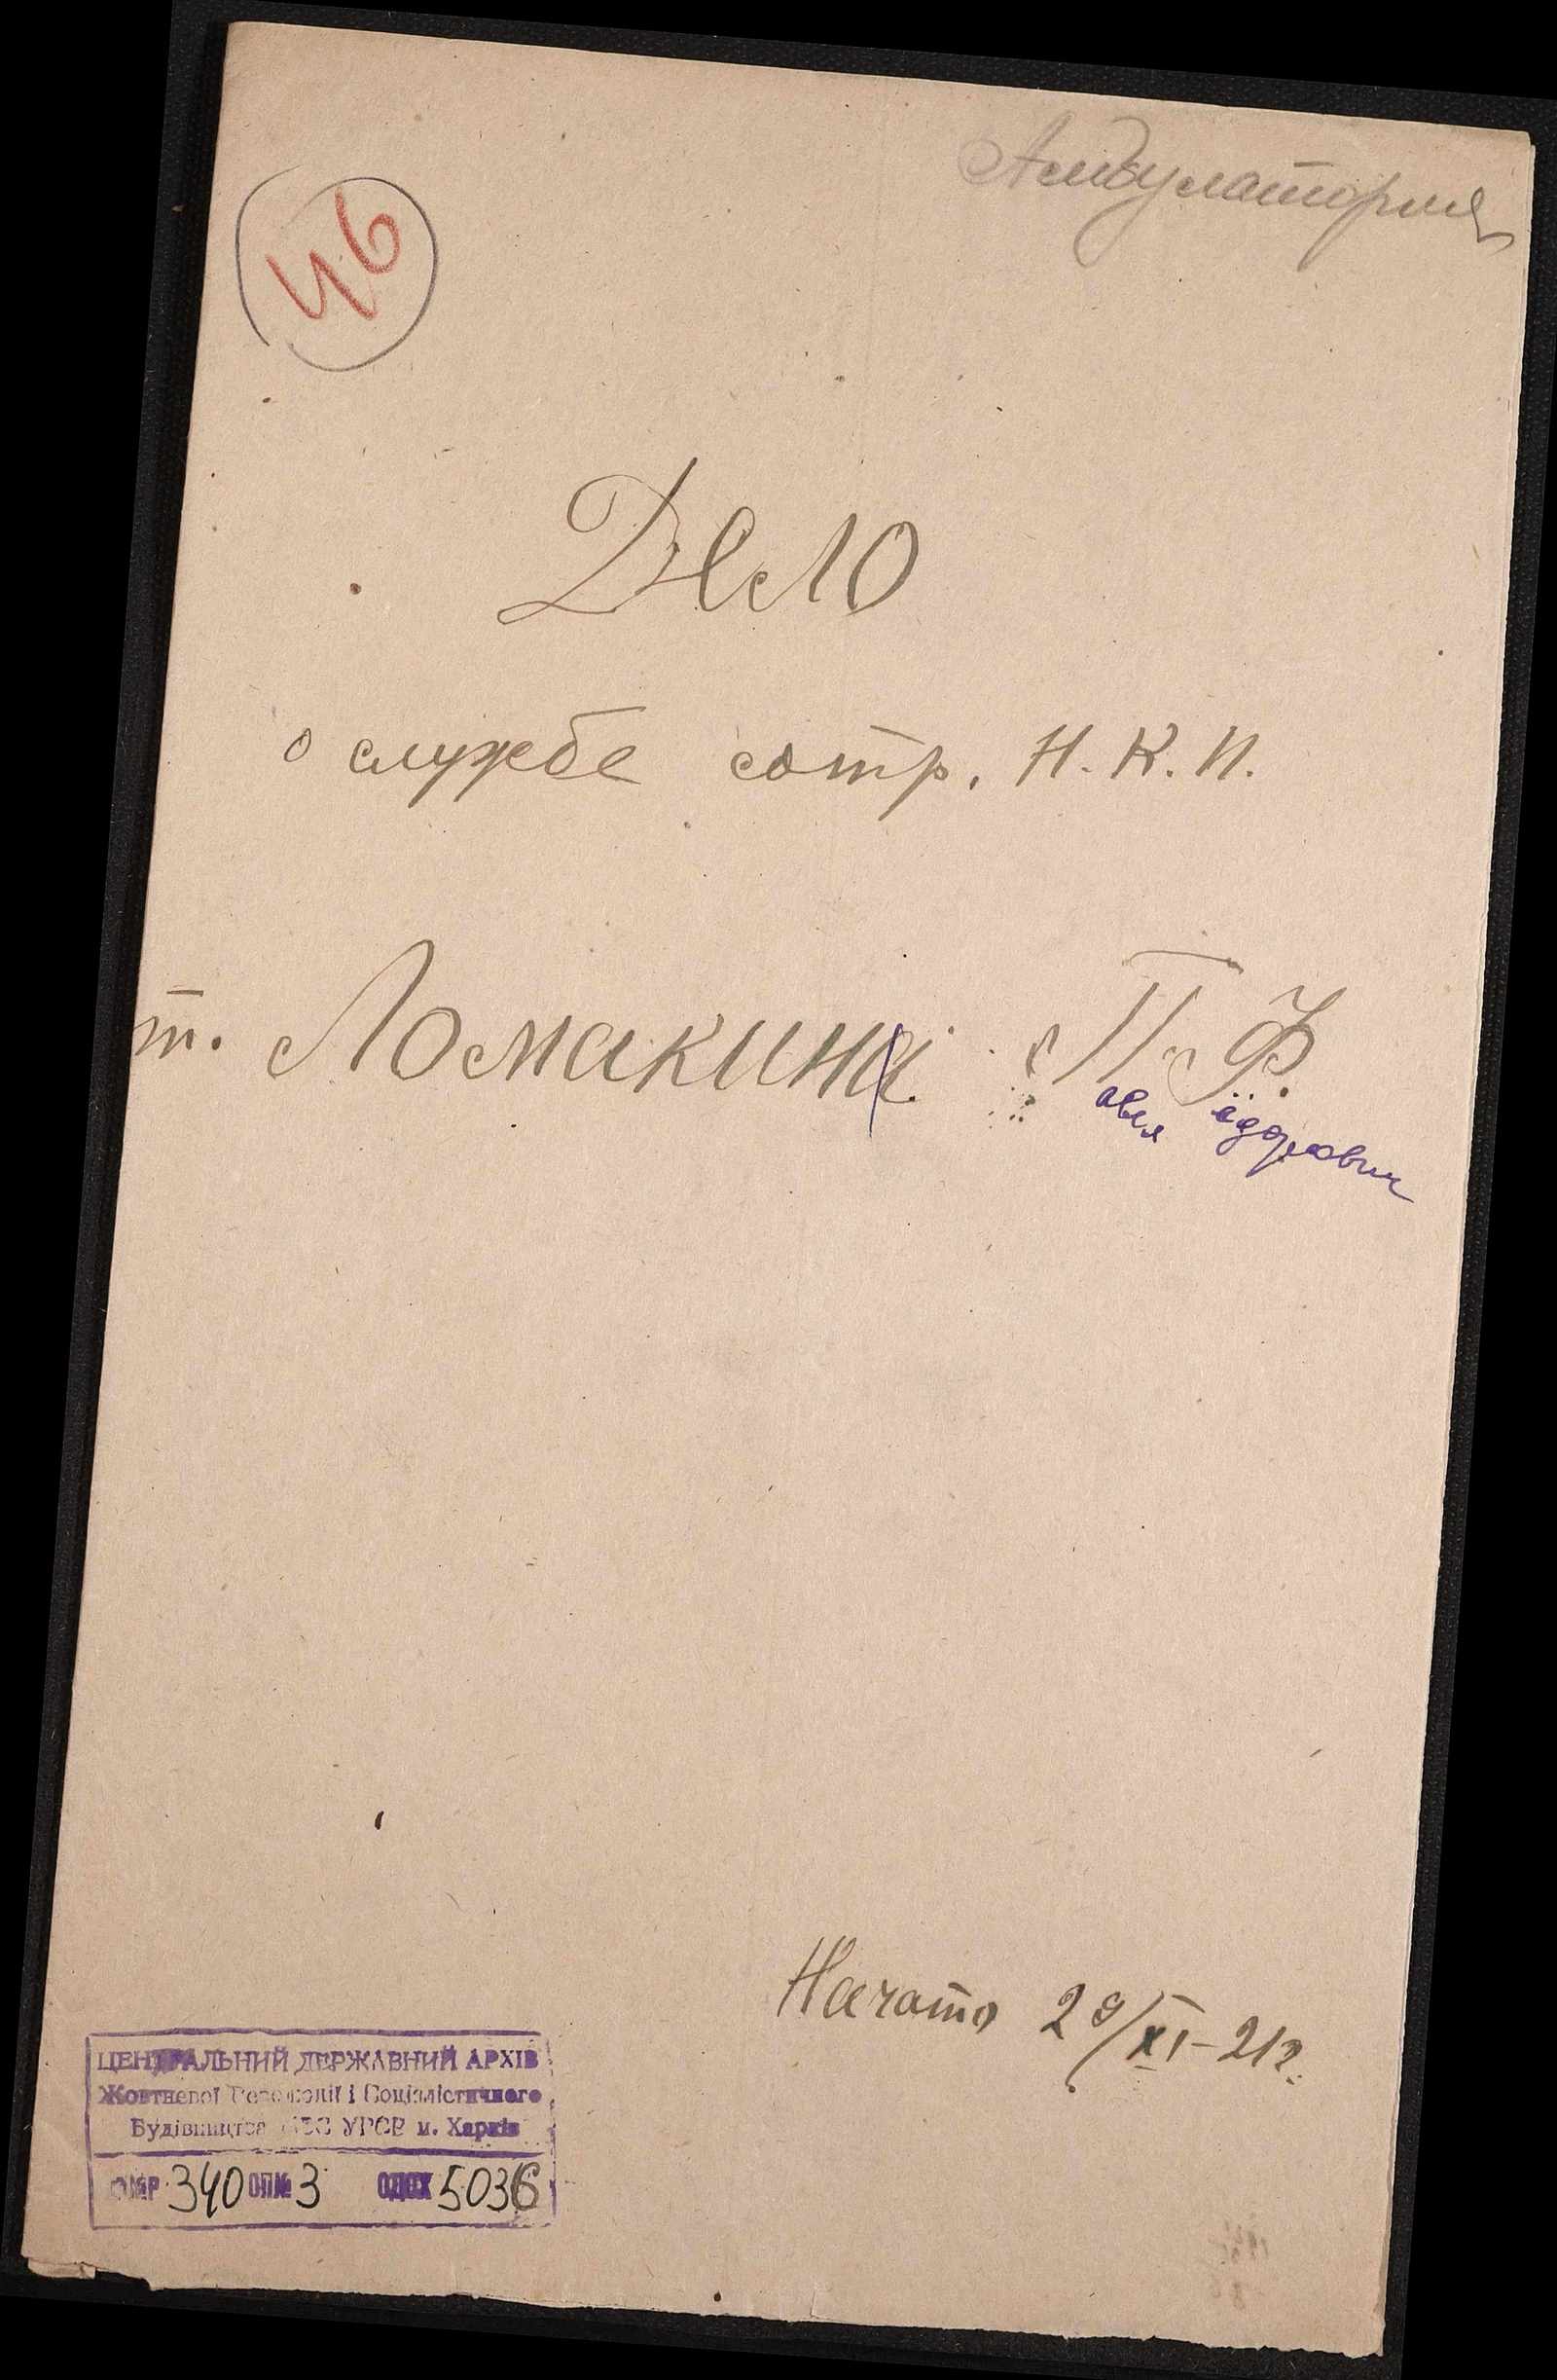 Амбулатория
46
Дело
о службе сотр. Н. К. И.
т. Ломакина П. Ф.
авел ёдорович
Начато 29/XI-21г.
ЦЕНТРАЛЬНИЙ ДЕРЖАВНИЙ АРХІВ
Жовтневої Революції і Соціалістичного
Будівництва УРСР м. Харків
Ф№Р 340 ОП№ 3 ОДОХ 5036